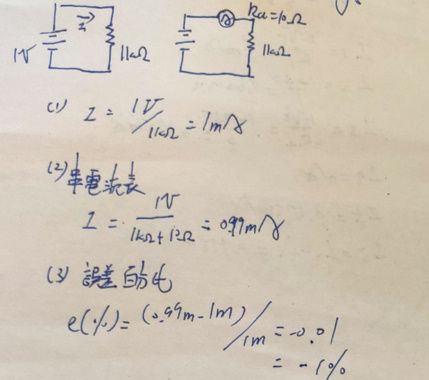 Ra=10Ω
I
1V
1kΩ
1kΩ
(1) I = 1V/1kΩ = 1mA
(2) 串電流表
I = 1V/1kΩ+12Ω = 0.99mA
(3) 誤差百分比
e(%) = (0.99m-1m)/1m = -0.01
= -1%